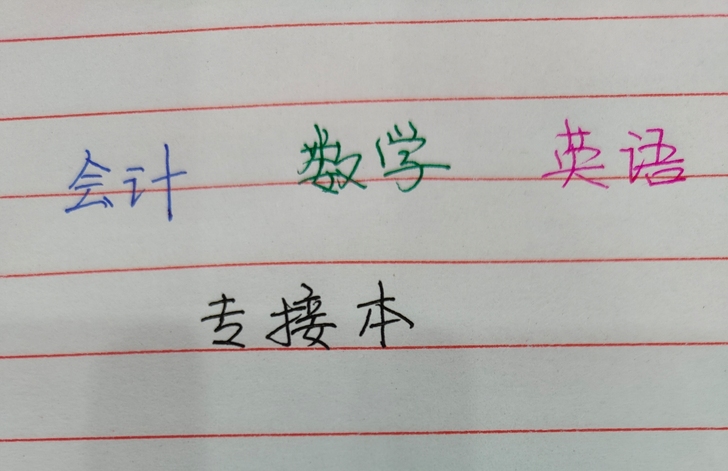 会计 数学 英语
专接本